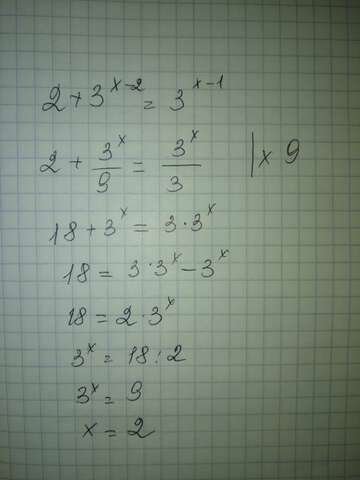 2 + 3^(x-2) = 3^(x-1)
2 + 3^x/9 = 3^x/3 | x 9
18 + 3^x = 3 · 3^x
18 = 3 · 3^x - 3^x
18 = 2 · 3^x
3^x = 18 : 2
3^x = 9
x = 2